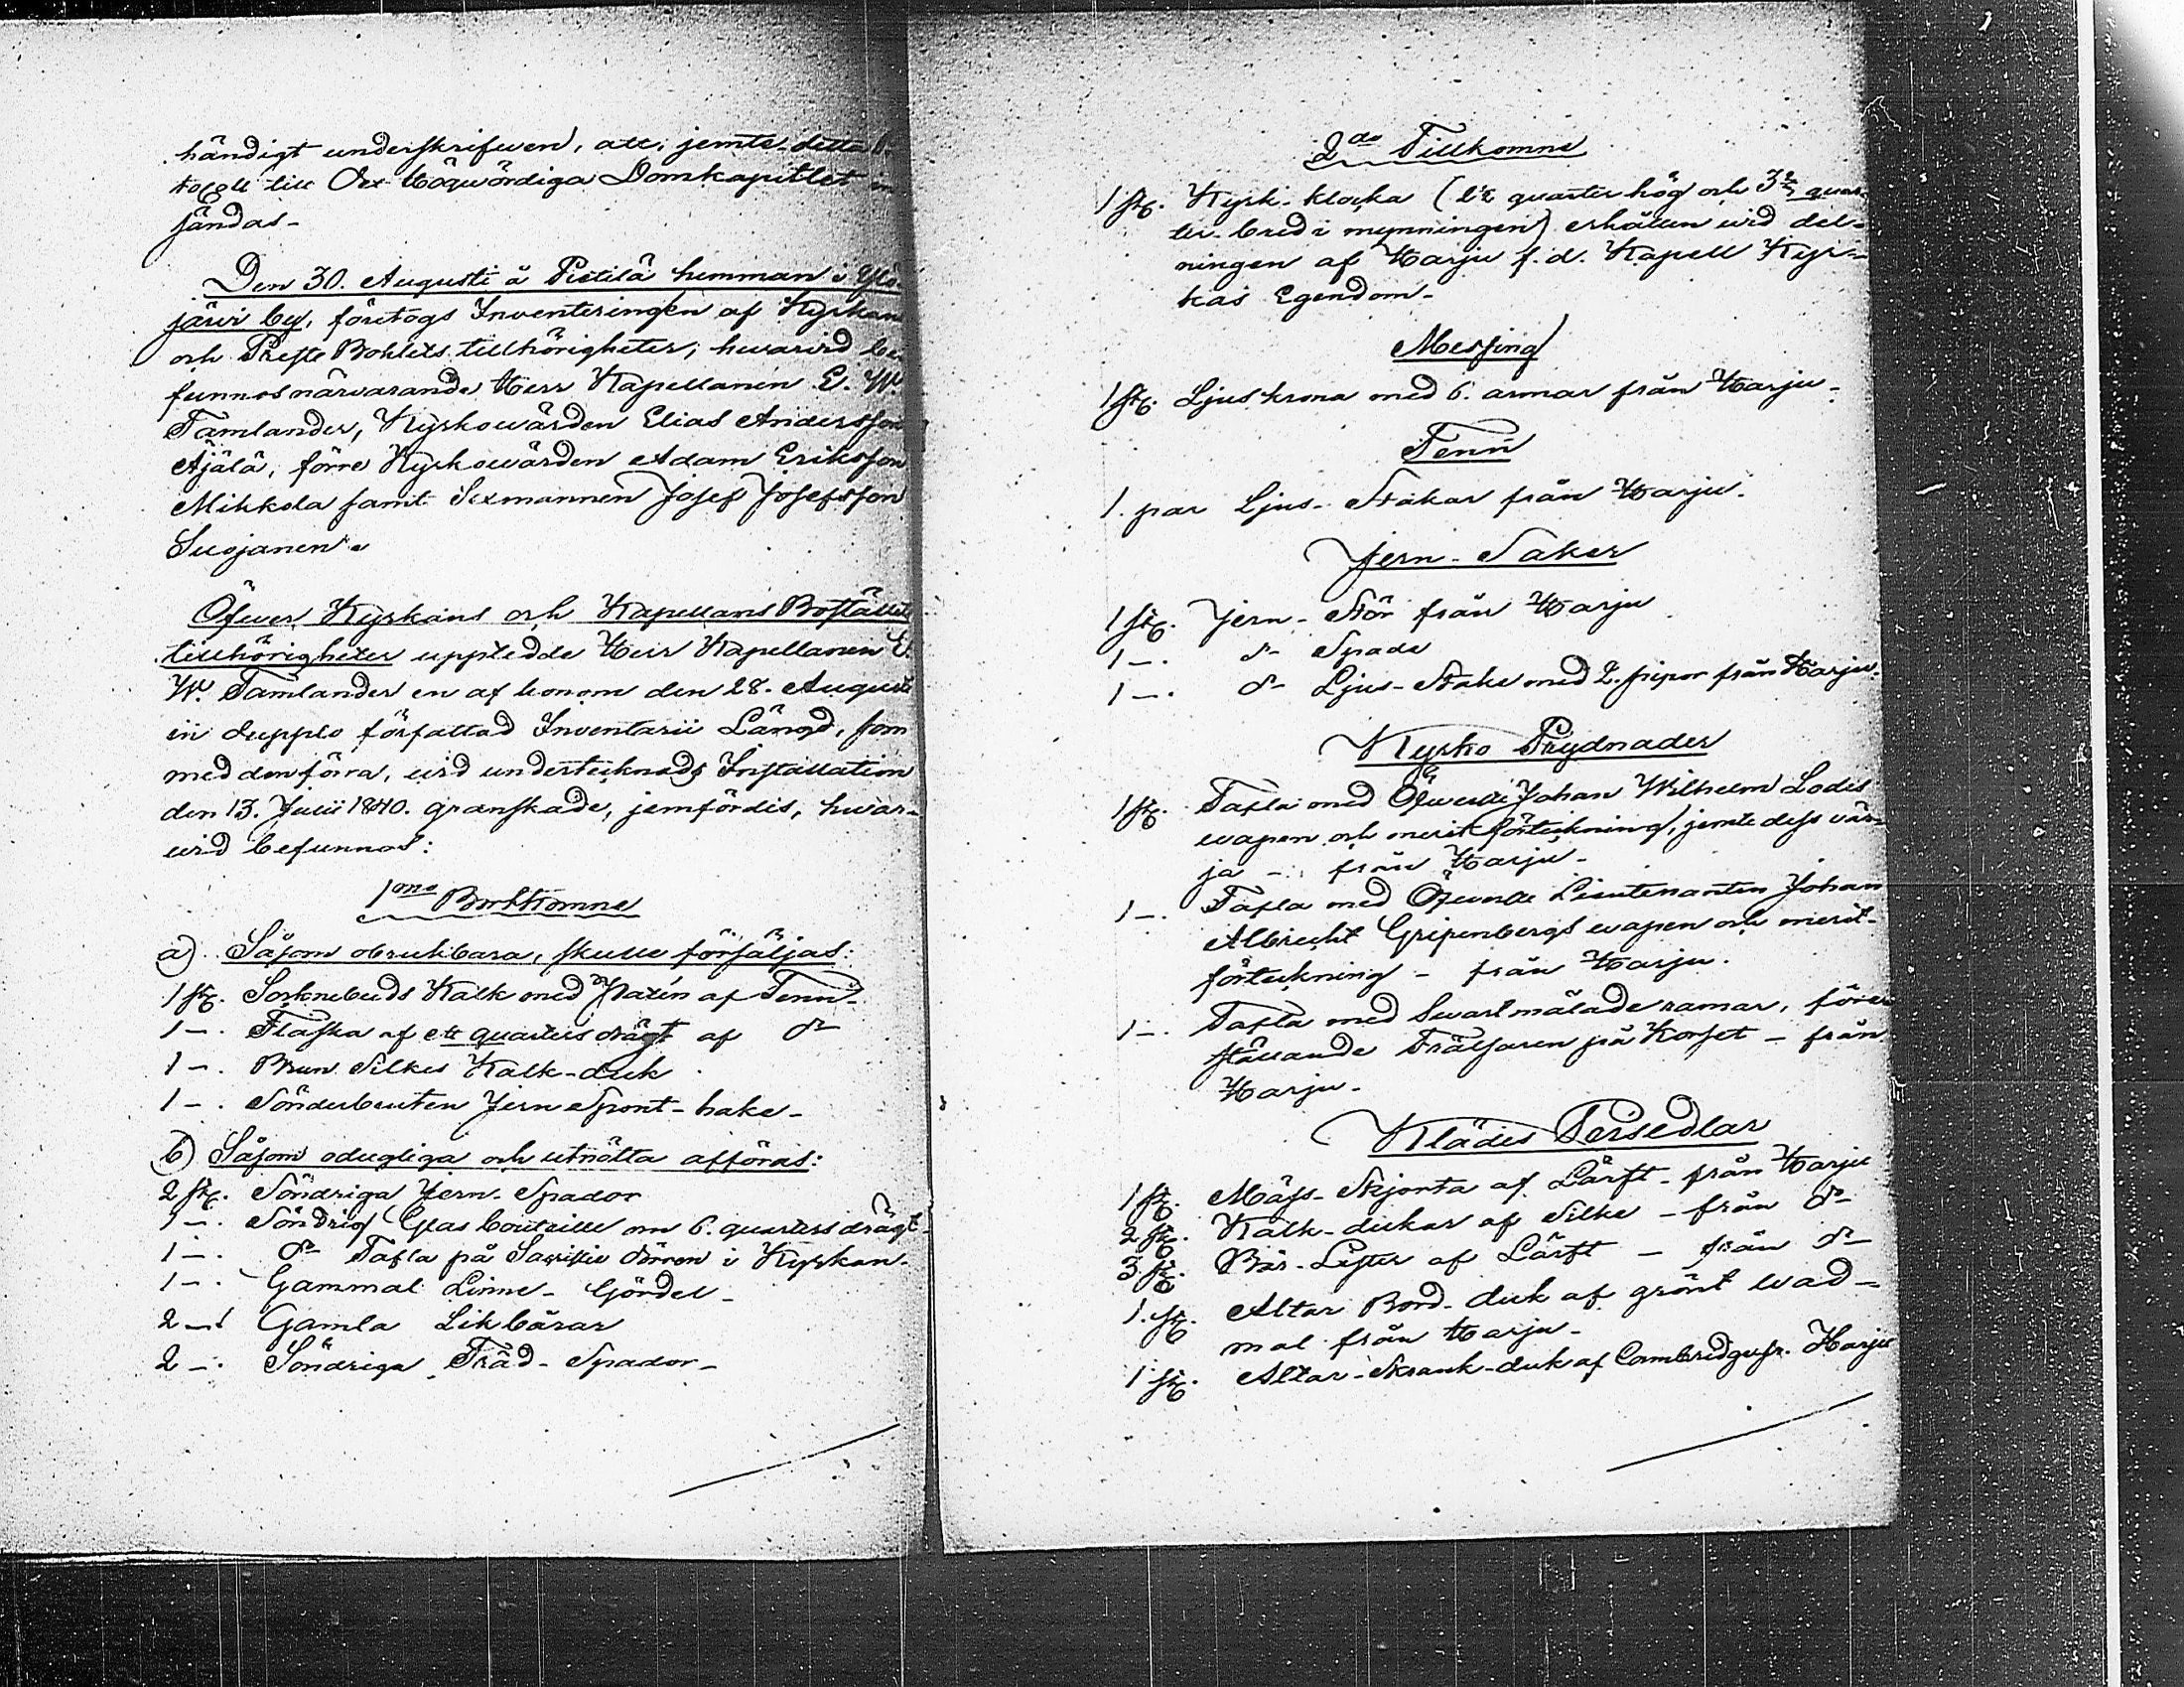 händigt underskrifwen, att, jemte detta
till Det Högwördiga Domkapitlet in
sändas-
Den 30. Augusti å Pietilä hemman i Ylö-
järvi by, företogs Inventeringen af Kyrkans
och Preste Bohlets tillhörigheter; hwarvid be-
funnos närvarande Herr Kapellanen E. W.
Tamlander, Kyrkowärden Elias Andersson
Äjälä, förre Kyrkowärden Adam Eriksson
Mikkola samt Sexmannen Josef Josefsson
Suojanen.
Öfwer Kyrkans och Kapellans Boställets
tillhörigheter upptedde Herr Kapellanen E.
W. Tamlander en af honom den 28. Augusti
in dupplo författad Inventarii Längd, som
med den förra, wid undertecknads Installation
den 13. Julii 1840. granskade, jemfördis, hwar-
wid befunnos:
1mo Bortkomne
a) Såsom obrukbara, skulle försäljas:
1 st. Sockneb­uds Kalk med Patén af Tenn-
1 -. Flaska af ett quarters drägt af do
1 -. Brun Silkes Kalk-duk
1 -. Sönderbruten Jern Spont-hake-
b) Såsom odugliga och utnötta afföras:
2 st. Söndriga Jern-Spador
1 -. Söndrig Glas bouteille om 6. quarters drägt-
1 -. do Tafla på Sacristie dörren i Kyrkan-
1 -. Gammal Linne-Gördel-
2 -. Gamla Likbårar
2 -. Söndriga Träd-Spador-
2do Tillkomne
1 st. Kyrk-klocka (2½ quarter hög och 3½ quar-
ter bred i mynningen) erhållen wid del-
ningen af Harju f. d. Kapell Kyr-
kas Egendom-
Messing
1 st. Ljus krona med 6. armar från Harju-
Tenn
1. par Ljus-Stakar från Harju.
Jern-Saker
1 st. Jern-Stör från Harju
1 -. do Spade
1 -. do Ljus-Stake med 2. pipor från Harju.
Kyrko Prydnader
1 st. Tafla med Öfwerste Johan Wilhelm Lodes
wapen och merit förteckning, jemte dess wär-
ja - från Harju-
1 -. Tafla med Öfwerste Lieutenanten Johan
Albrecht Gripenbergs wapen och merit-
förteckning - från Harju.
1 -. Tafla med Swartmålade ramar, före-
ställande Frälsaren på Korset - från
Harju-
Klädes Persedlar
1 st. Mäss-Skjorta af Lärft - från Harju
2 st. Kalk-dukar af Silke - från do
3 st. Bår-Lister af Lärft - från do
1. st. Altar Bord-duk af grönt wad-
mal från Harju-
1 st. Altar-Skrank-duk af Cambridge fr. Harju